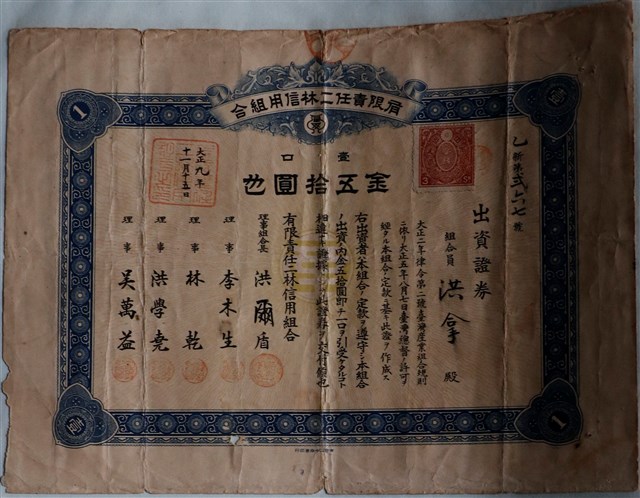 有限責任二林信用組合
乙新第弐六七號
壹口
金五拾圓也
出資證券
組合員 洪拿 殿
大正二年律令第二號臺灣產業組合規則
ニ依リ大正五年八月七日臺灣總督ノ許可
ヲ經タル本組合ノ定款ニ基キ此證ヲ作成ス
右出資者ハ本組合ノ定款ヲ遵守シ本組合
ノ出資内金五拾圓即チ一口ヲ引受ケタルコト
相違ナ
此證券ヲ交付候也
有限責任二林信用組合
理事組合長 洪爾
理事 李木生
理事 林乾
理事 洪學堯
理事 吳萬益
大正九年
十一月十五日
1
1